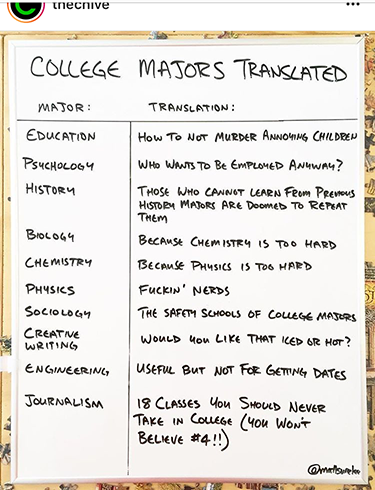 thechive
COLLEGE MAJORS TRANSLATED
MAJOR: TRANSLATION:
EDUCATION HOW TO NOT MURDER ANNOYING CHILDREN
PSYCHOLOGY WHO WANTS TO BE EMPLOYED ANYWAY?
HISTORY THOSE WHO CANNOT LEARN FROM PREVIOUS
HISTORY MAJORS ARE DOOMED TO REPEAT
THEM
BIOLOGY BECAUSE CHEMISTRY IS TOO HARD
CHEMISTRY BECAUSE PHYSICS IS TOO HARD
PHYSICS FUCKIN' NERDS
SOCIOLOGY THE SAFETY SCHOOLS OF COLLEGE MAJORS
CREATIVE
WRITING WOULD YOU LIKE THAT ICED OR HOT?
ENGINEERING USEFUL BUT NOT FOR GETTING DATES
JOURNALISM 18 CLASSES YOU SHOULD NEVER
TAKE IN COLLEGE (YOU WON'T
BELIEVE #4!!)